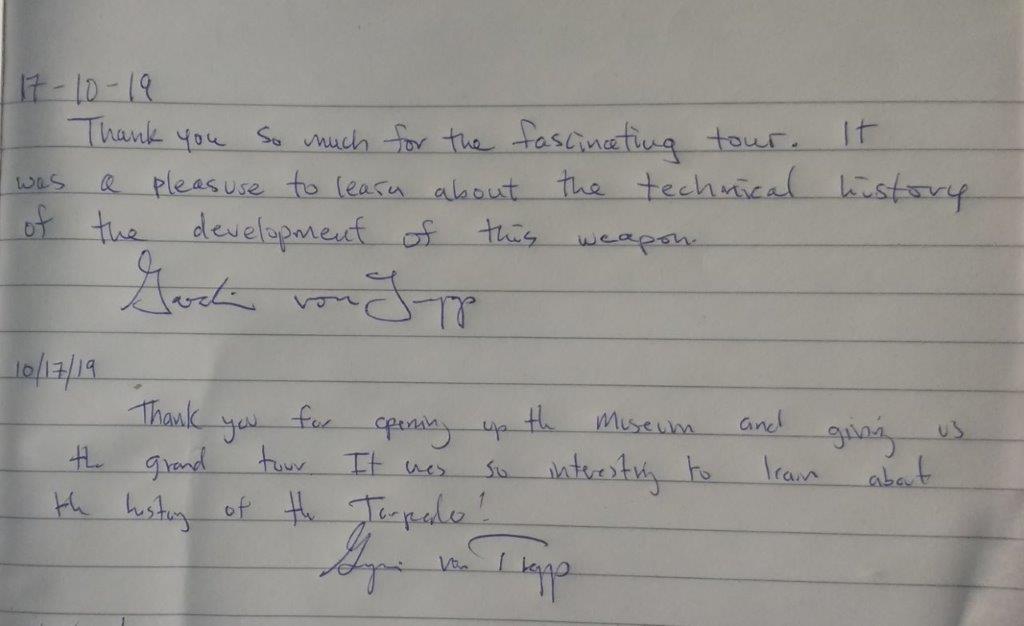 17-10-19
Thank you so much for the fascinating tour. It
was a pleasure to learn about the technical history
of the development of this weapon.
von Trapp
10/17/19
Thank you for opening up the Museum and giving us
the grand tour. It was so interesting to learn about
the history of the Torpedo!
von Trapp